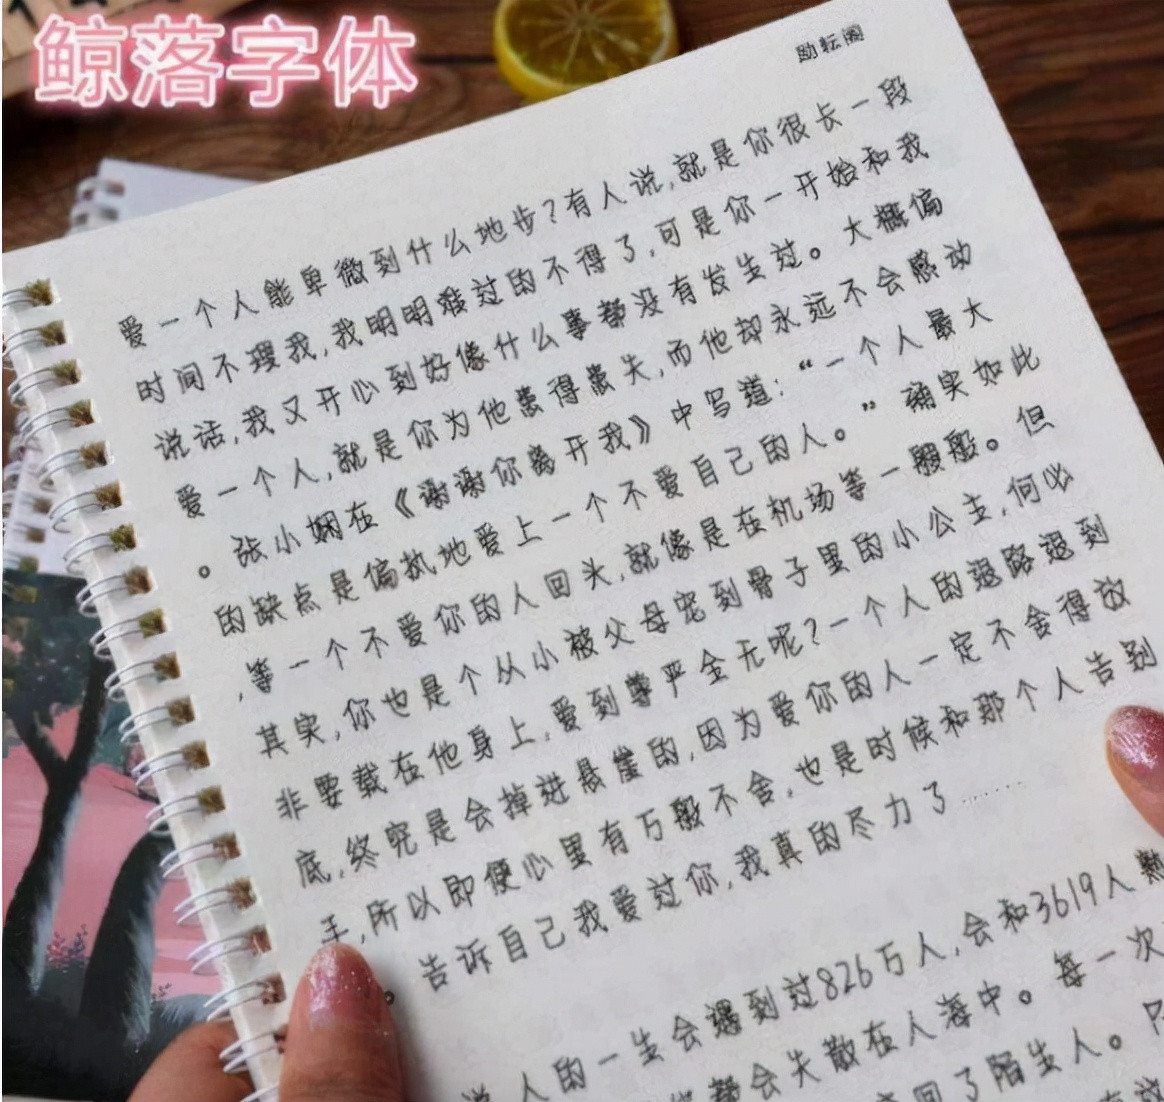 鲸落字体
励耘圈
爱一个人能卑微到什么地步?有人说,就是你很长一段
时间不理我,我明明难过的不得了,可是你一开始和我
说话,我又开心到好像什么事都没有发生过。大概偏
爱一个人,就是你为他患得患失,而他却永远不会感动
。张小娴在《谢谢你离开我》中写道:“一个人最大
的缺点是偏执地爱上一个不爱自己的人。”确实如此
,等一个不爱你的人回头,就像是在机场等一艘船。但
其实,你也是个从小被父母宠到骨子里的小公主,何必
非要栽在他身上,爱到尊严全无呢?一个人的退路退到
底,终究是会掉进悬崖的,因为爱你的人一定不舍得放
手,所以即便心里有万般不舍,也是时候和那个人告别
。告诉自己我爱过你,我真的尽力了……
人的一生会遇到过826万人,会和3619人
都会失散在人海中。每一次
回了陌生人。